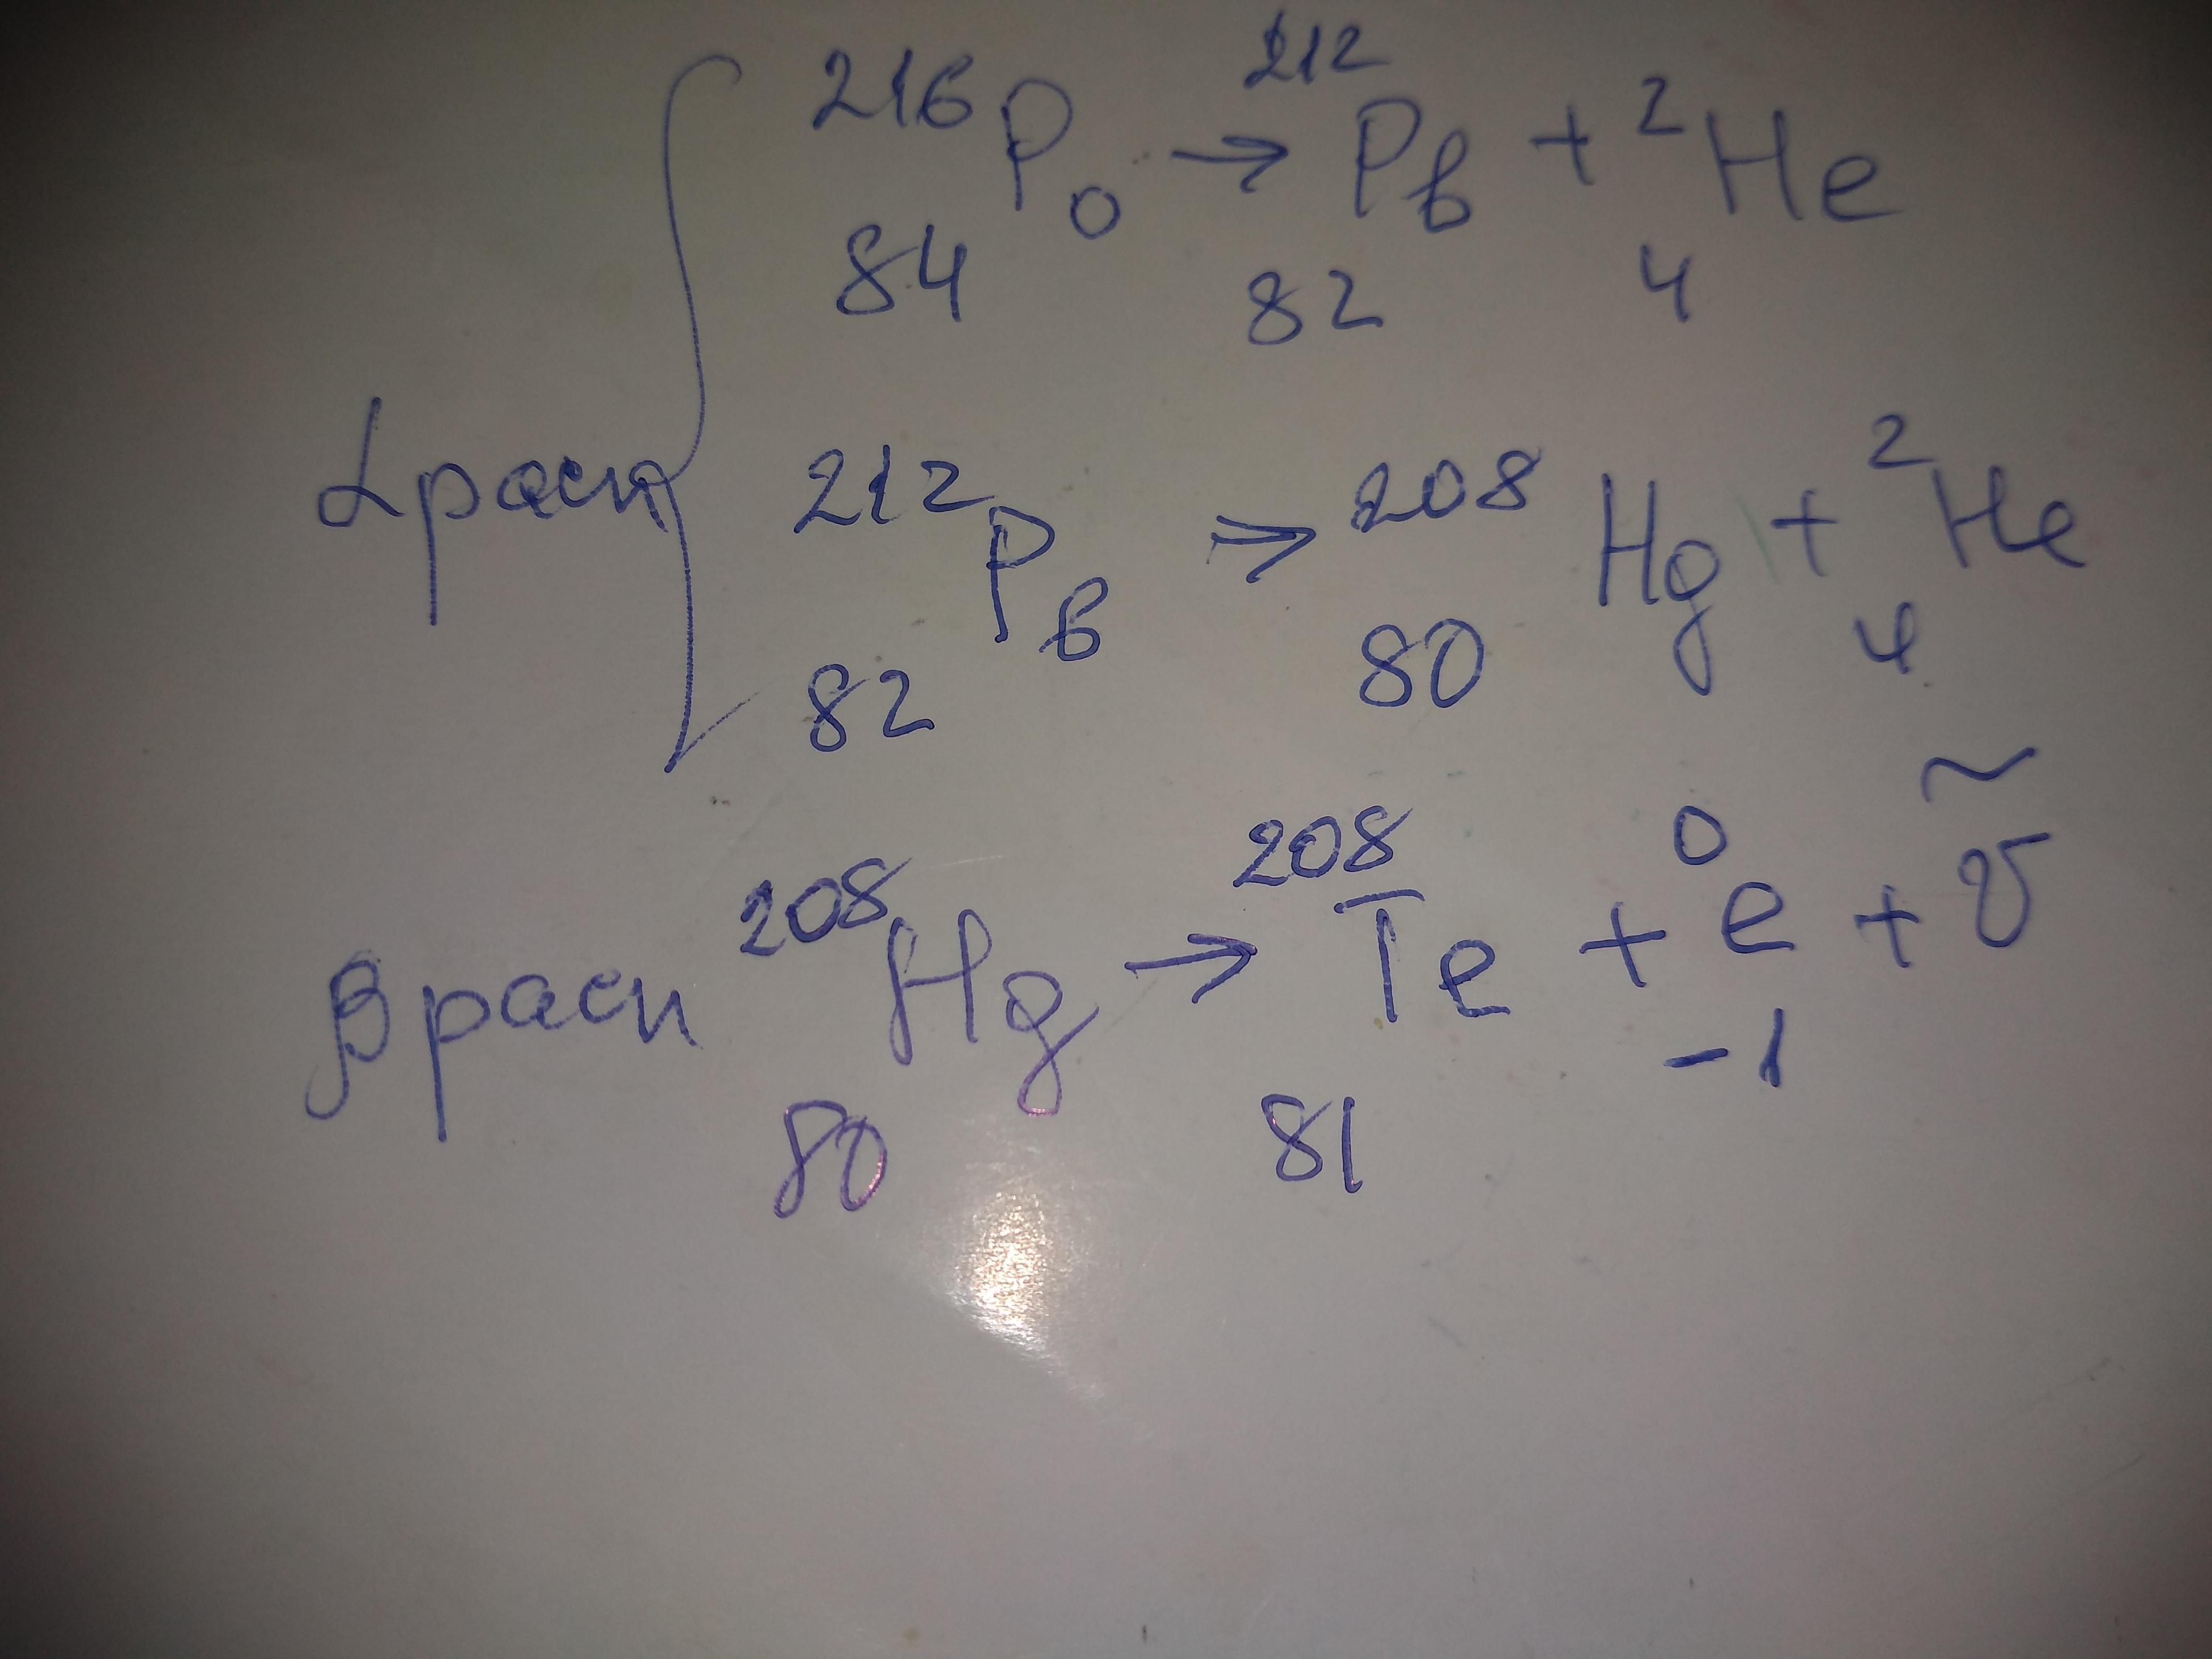 α расп { ²¹⁶₈₄Po → ²¹²₈₂Pb + ²₄He
²¹²₈₂Pb → ²⁰⁸₈₀Hg + ²₄He
β расп ²⁰⁸₈₀Hg → ²⁰⁸₈₁Te + ⁰₋₁e + ν̃